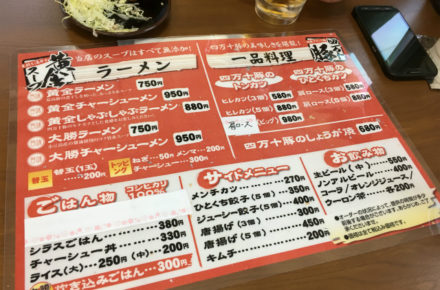 黄金スープ
当店のスープはすべて無添加!
ラーメン
黄金ラーメン 750円
黄金チャーシューメン 950円
黄金しゃぶしゃぶラーメン 880円
大勝ラーメン 750円
大勝チャーシューメン 950円
替玉
替玉(1玉) 200円
トッピング
ねぎ… 50円 メンマ… 200円
チャーシュー… 300円
四万十豚の美味しさを堪能!
一品料理
四万十豚のトンカツ
四万十豚のひとくちカツ
ヒレカツ(3個) 580円
ヒレカツ(5個) 880円
肩ロース
(ビッグ) 980円
肩ロース(3個) 580円
肩ロース(5個) 880円
四万十豚のしょうが焼 680円
ごはん物
コシヒカリ100%
シラスごはん 380円
チャーシュー丼 330円
ライス(大)… 250円(中)… 200円
炊き込みごはん… 300円
サイドメニュー
メンチカツ 270円
ひとくち餃子(5個) 350円
ジューシー餃子(5個) 400円
唐揚げ(3個) 300円
唐揚げ(5個) 450円
キムチ 200円
お飲み物
生ビール(中) 550円
ノンアルビール 400円
コーラ/オレンジジュース/
ウーロン茶 各200円